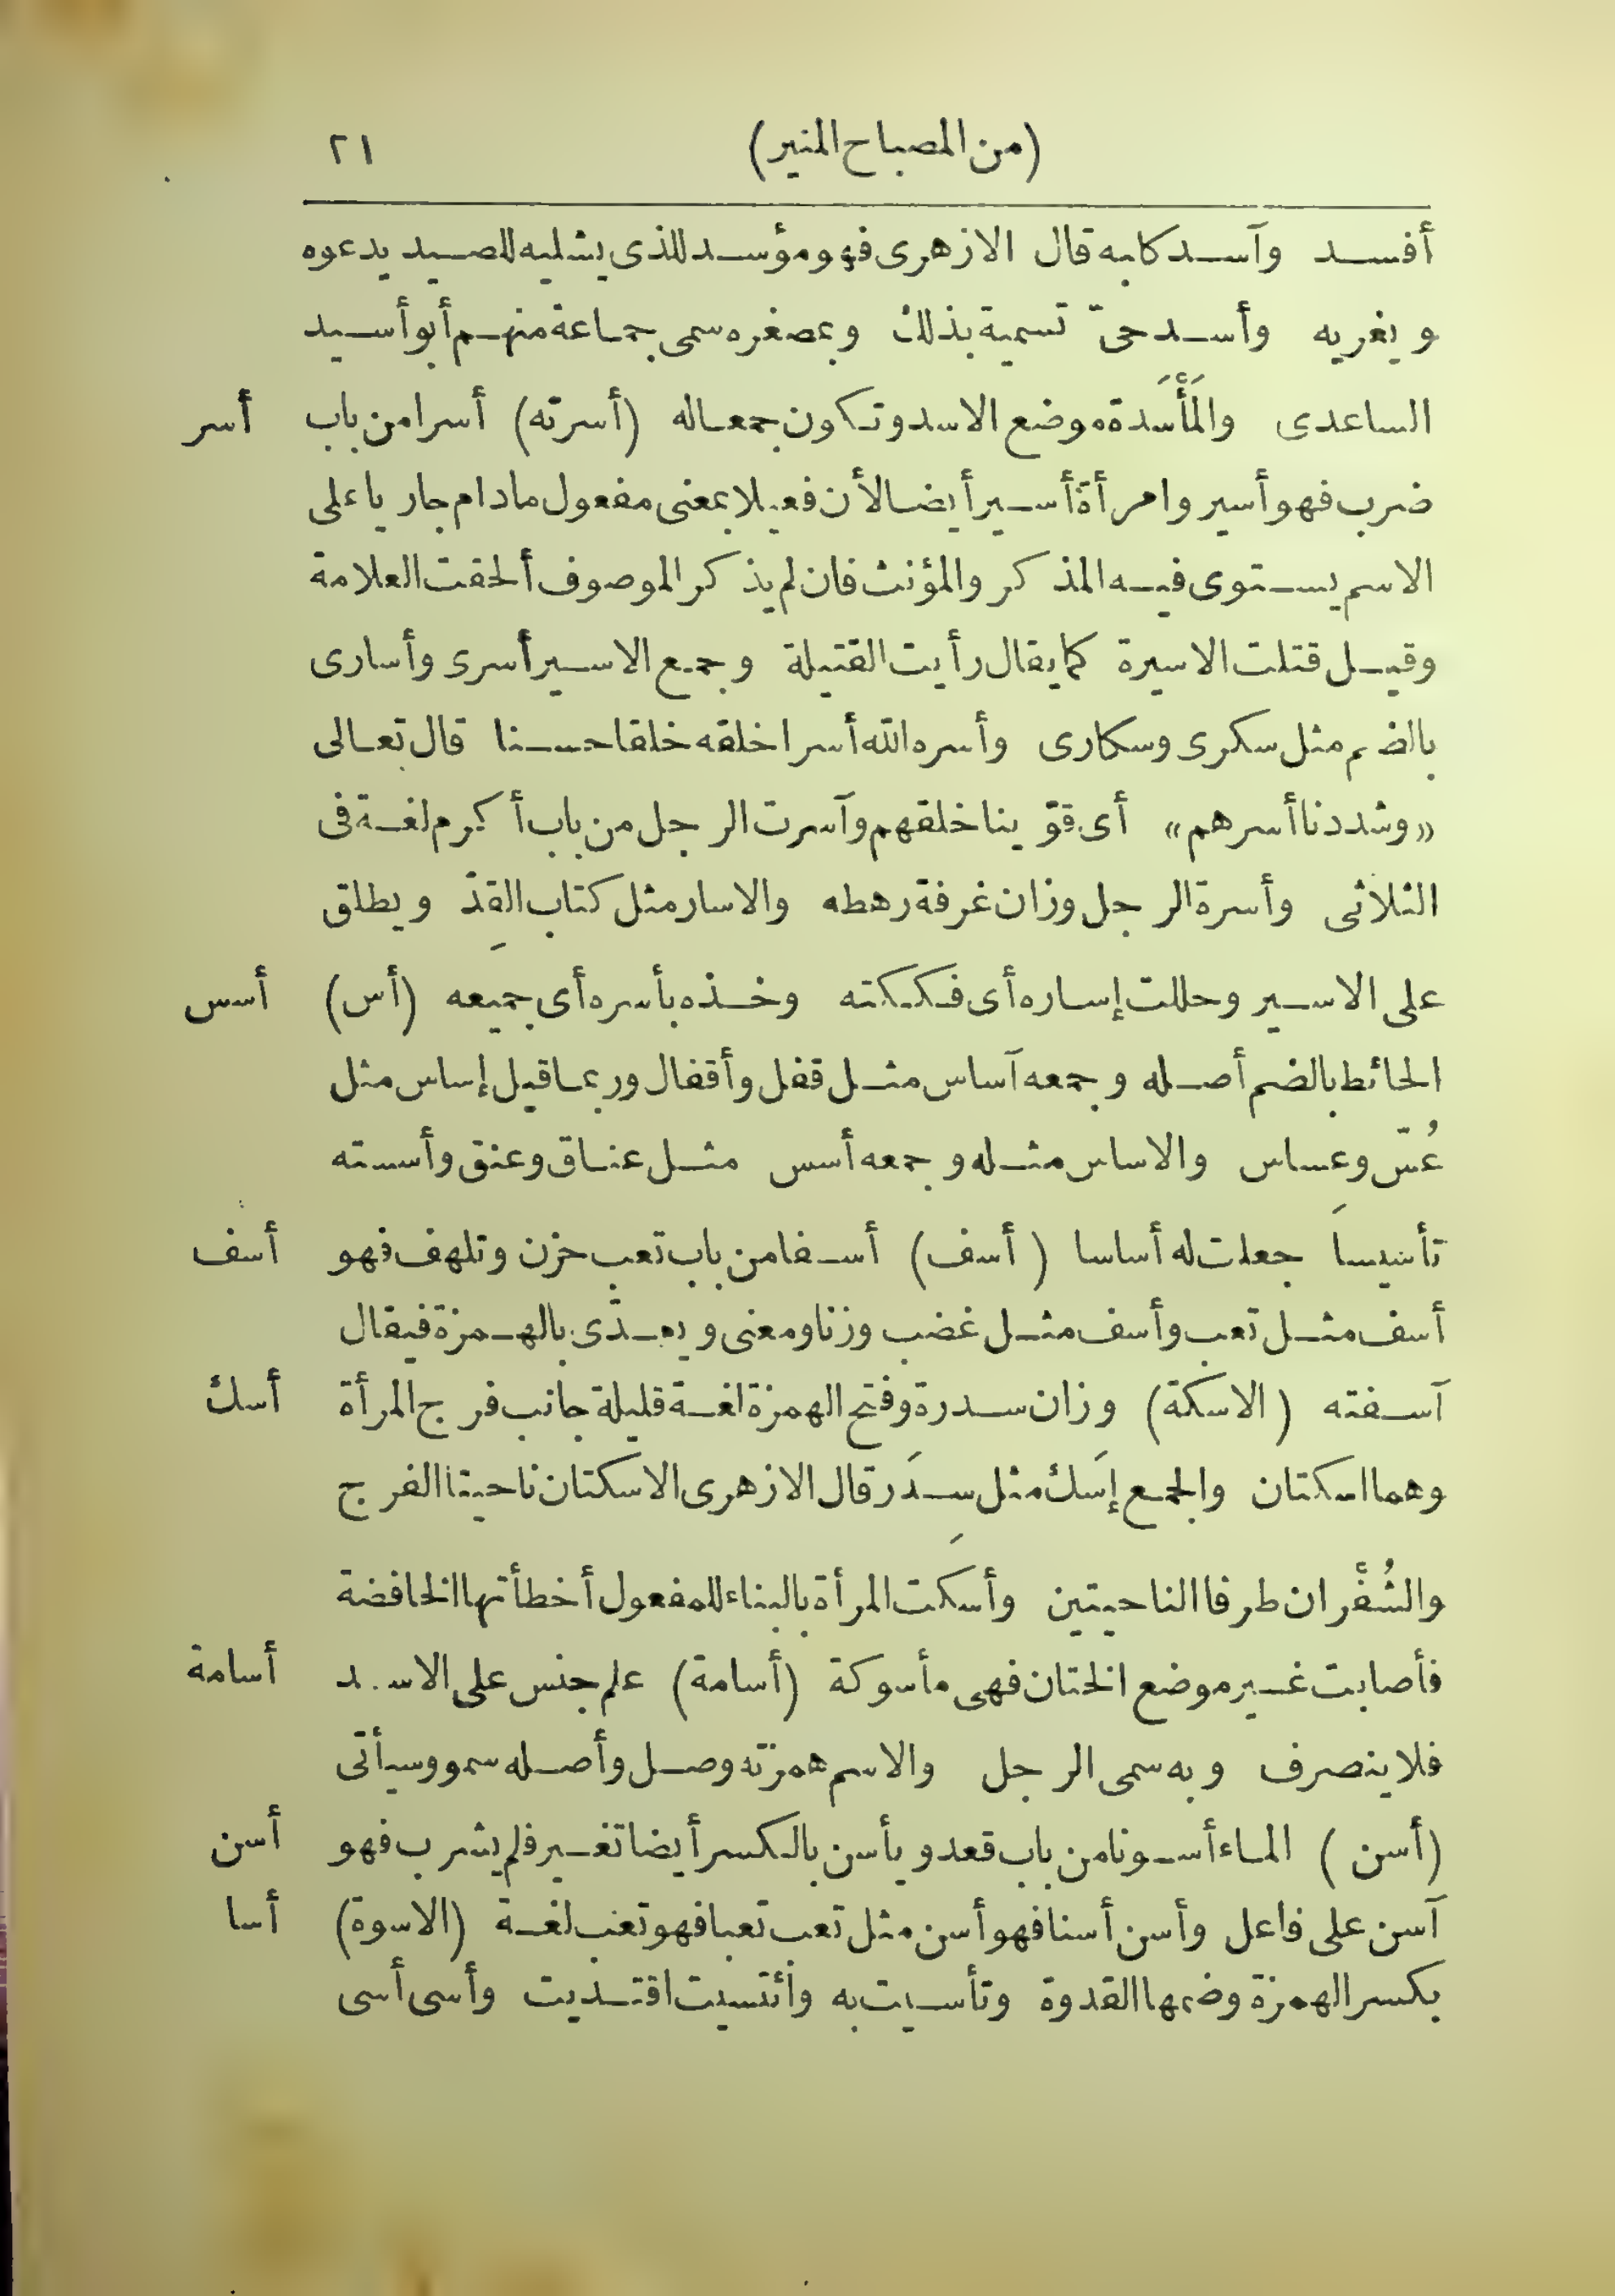 (من المصباح المنير) ٢١
أفسد وآسد كلبه قال الازهرى فهو مؤسد للذى يشليه للصيد يدعوه
ويغريه وأسد حىّ تسمية بذلك وبمصغره سمى جماعة منهم أبو أسيد
الساعدى والمَأْسَدة موضع الاسد وتكون جمعا له (أسرته) أسرا من باب أسر
ضرب فهو أسير وامرأة أسير أيضا لأن فعيلا بمعنى مفعول مادام جاريا على
الاسم يستوى فيه المذكر والمؤنث فان لم يذكر الموصوف ألحقت العلامة
وقيل قتلت الاسيرة كما يقال رأيت القتيلة وجمع الاسير أسرى وأسارى
بالضم مثل سكرى وسكارى وأسره الله أسرا خلقه خلقا حسنا قال تعالى
«وشددنا أسرهم» أى قوّينا خلقهم وآسرت الرجل من باب أكرم لغة فى
الثلاثى وأسرة الرجل وزان غرفة رهطه والاسار مثل كتاب القِدّ ويطلق
على الاسير وحللت إساره أى فككته وخذه بأسره أى جميعه (أس) أسس
الحائط بالضم أصله وجمعه آساس مثل قفل وأقفال وربما قيل إساس مثل
عُسّ وعساس والاساس مثله وجمعه أسس مثل عناق وعنق وأسسته
تأسيسا جعلت له أساسا (أسف) أسفا من باب تعب حزن وتلهف فهو أسف
أسف مثل تعب وأسف مثل غضب وزنا ومعنى ويعدّى بالهمزة فيقال
آسفته (الاسكة) وزان سدرة وفتح الهمزة لغة قليلة جانب فرج المرأة أسك
وهما اسكتان والجمع إسَك مثل سِدَر قال الازهرى الاسكتان ناحيتا الفرج
والشُفْران طرفا الناحيتين وأسِكت المرأة بالبناء للمفعول أخطأتها الخافضة
فأصابت غير موضع الختان فهى مأسوكة (أسامة) علم جنس على الاسد أسامة
فلا ينصرف وبه سمى الرجل والاسم همزته وصل وأصله سمو وسيأتى
(أسن) الماء أسونا من باب قعد ويأسن بالكسر أيضا تغير فلم يشرب فهو أسن
آسن على فاعل وأسن أسنا فهو أسن مثل تعب تعبا فهو تعب لغة (الاسوة) أسا
بكسر الهمزة وضمها القدوة وتأسيت به وائتسيت اقتديت وأسى أسى